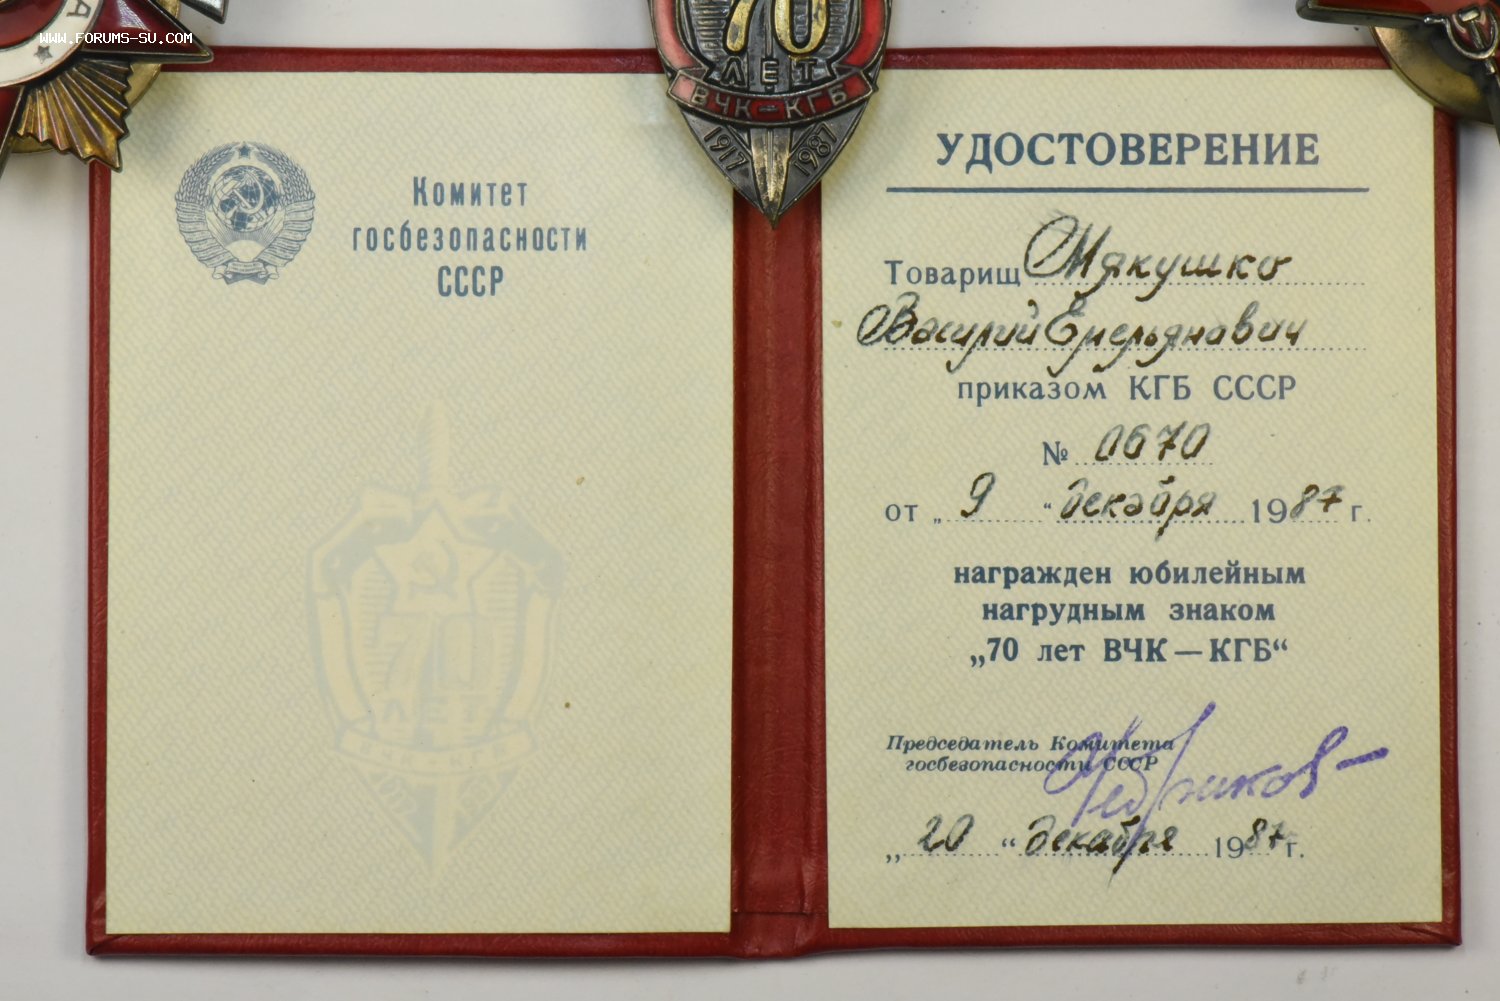 WWW.FORUMS-SU.COM
70
ЛЕТ
ВЧК-КГБ
1917 1987
Комитет
госбезопасности
СССР
70
ЛЕТ
УДОСТОВЕРЕНИЕ
Товарищ Мякушко
Василий Емельянович
приказом КГБ СССР
№ 0670
от „ 9 “ декабря 1987 г.
награжден юбилейным
нагрудным знаком
„70 лет ВЧК — КГБ“
Председатель Комитета
госбезопасности СССР
„ 20 “ декабря 1987 г.